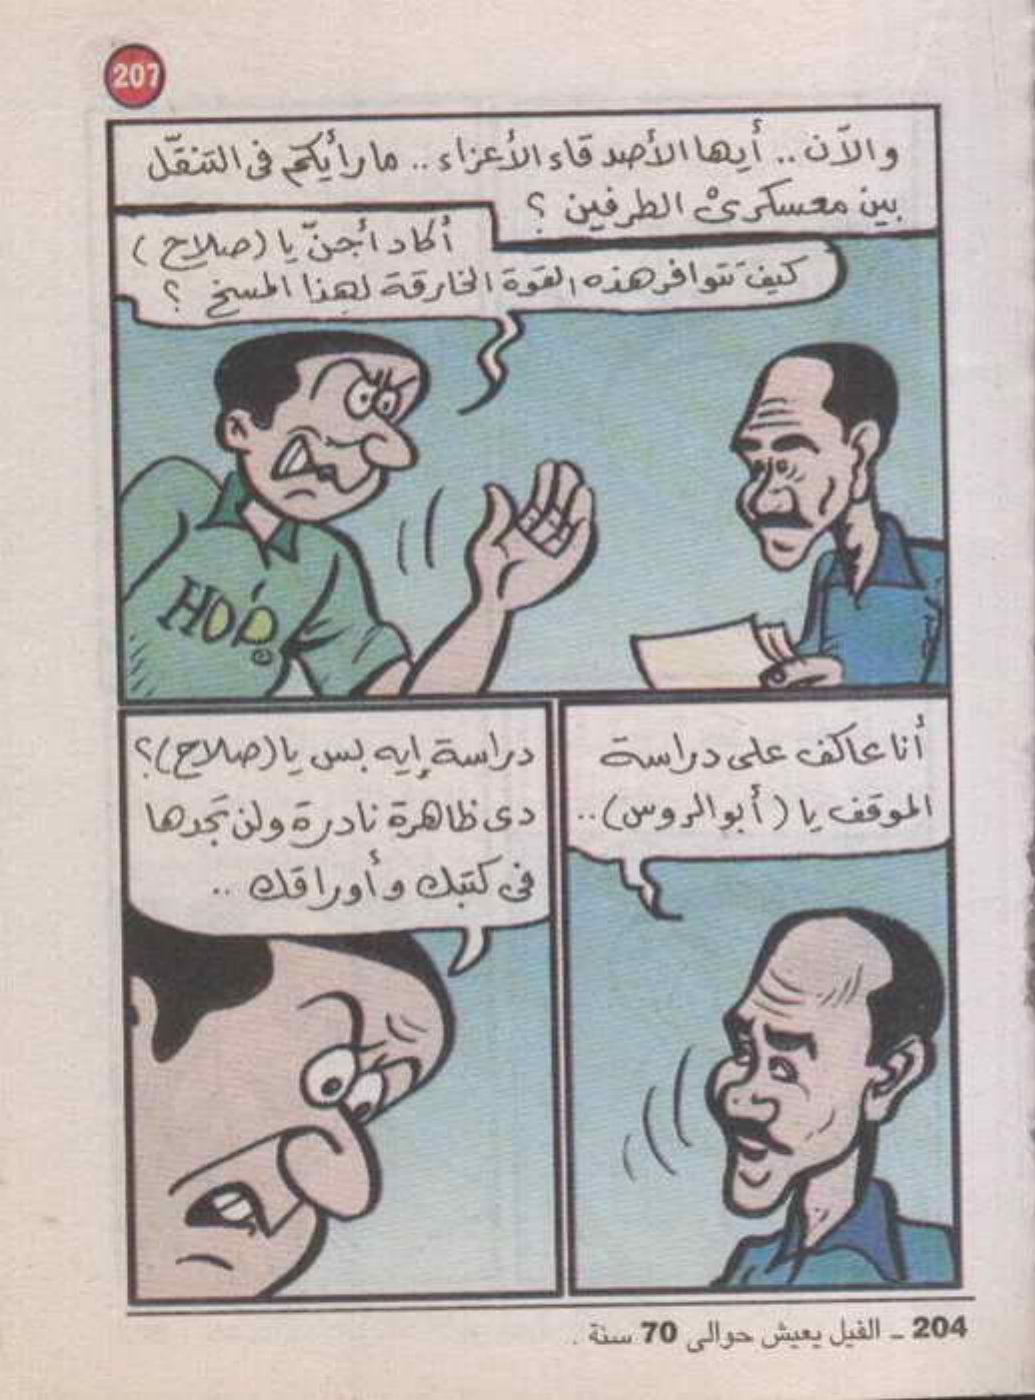 207
والآن .. أيها الأصدقاء الأعزاء .. ما رأيكم فى التنقّل
بين معسكرىْ الطرفين ؟
أكاد أجنّ يا (صلاح)
كيف تتوافر هذه القوة الخارقة لهذا المسخ ؟
HOP
أنا عاكف على دراسة
الموقف يا (أبو الروس)..
دراسة إيه بس يا (صلاح)؟
دى ظاهرة نادرة ولن تجدها
فى كتبك وأوراقك ..
204 ـ الفيل يعيش حوالى 70 سنة .